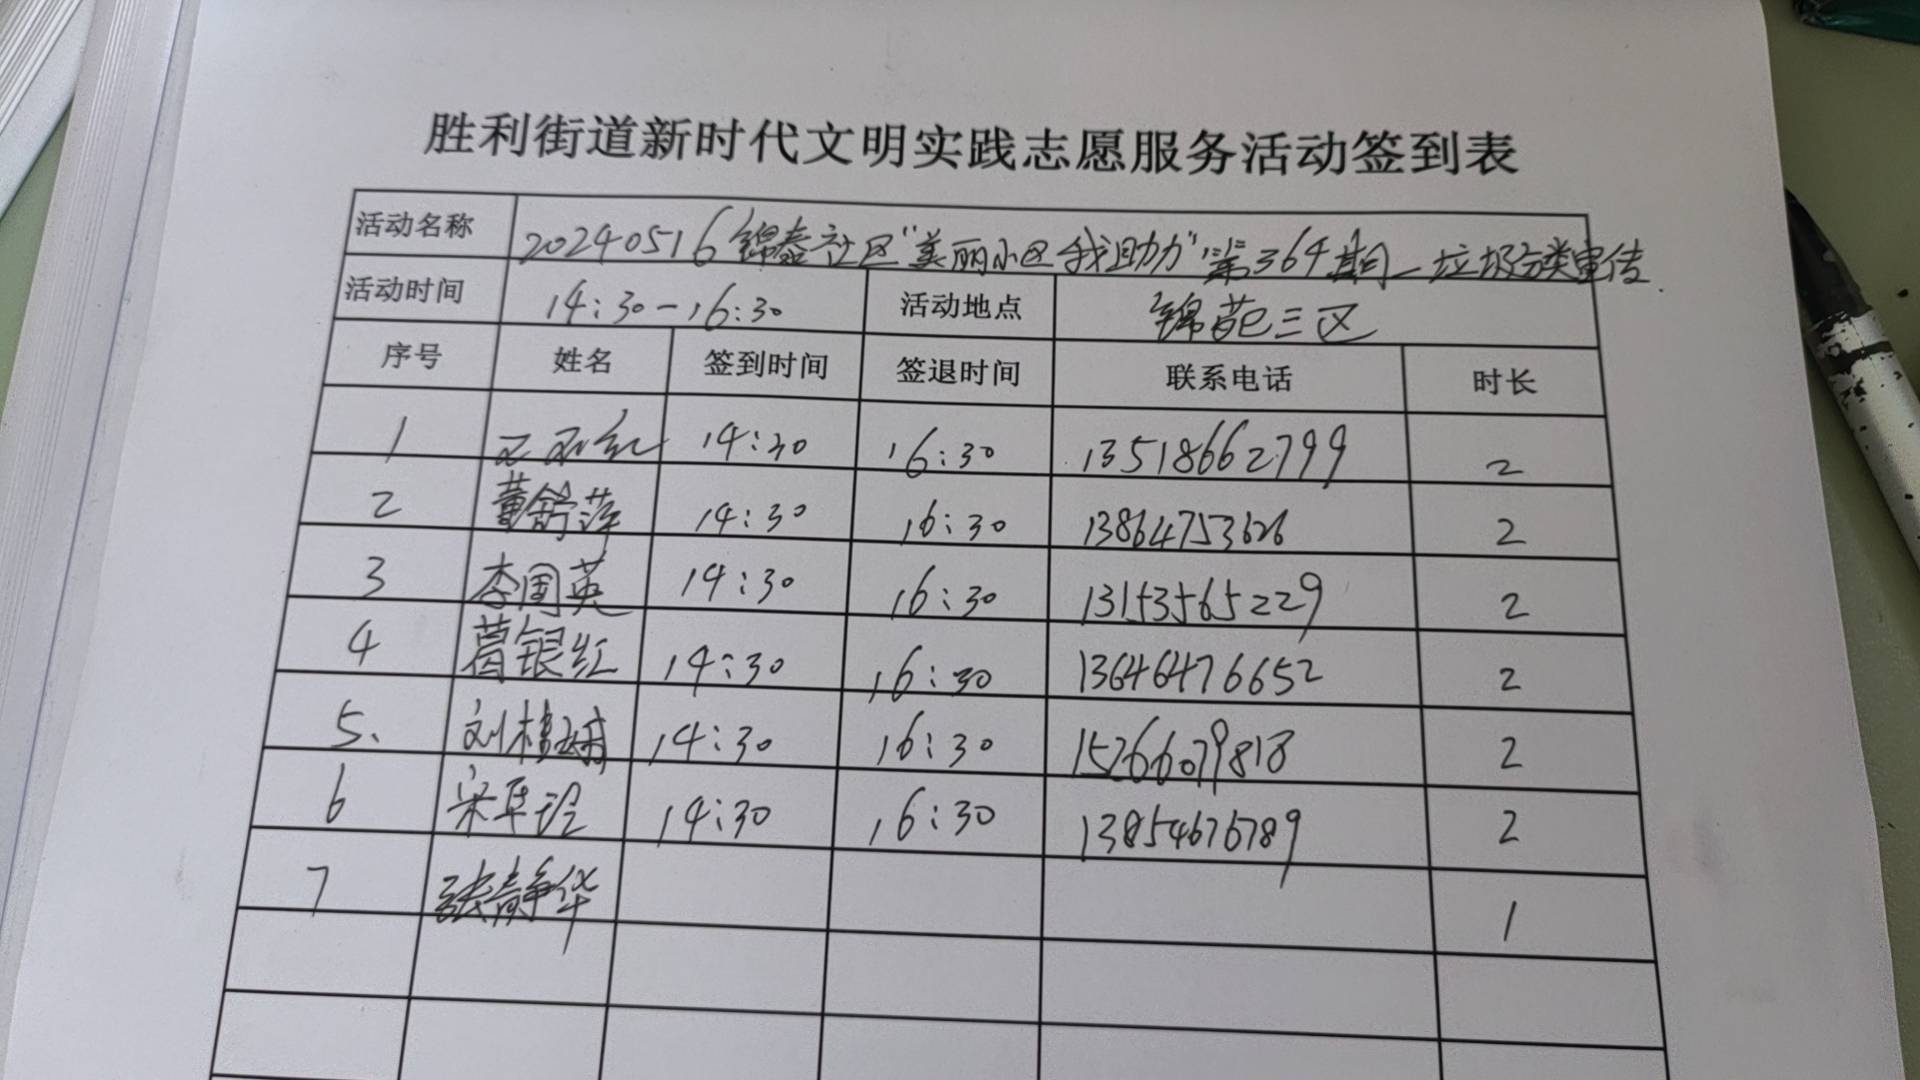 胜利街道新时代文明实践志愿服务活动签到表
活动名称 20240516锦泰社区“美丽小区我助力”第364期_垃圾分类宣传.
活动时间 14:30-16:30 活动地点 锦苑三区
序号 姓名 签到时间 签退时间 联系电话 时长
1 14:30 16:30 13518662799 2
2 董舒萍 14:30 16:30 13864753626 2
3 李国英 14:30 16:30 13153565229 2
4 葛银红 14:30 16:30 13646476652 2
5、 刘桂娥 14:30 16:30 15266079818 2
6 宋华玲 14:30 16:30 13854676789 2
7 张静华 1